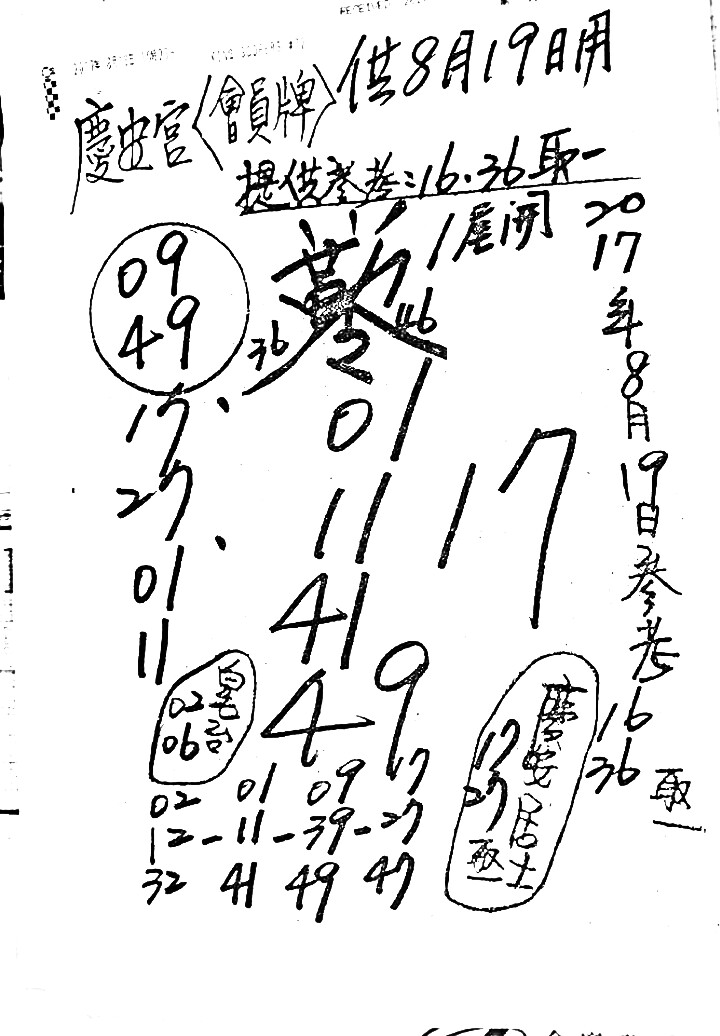 慶安宮〈會員牌〉供8月19日用
提供參考:16.36取一
1尾開
09
49
36
46
2
01
11
41
49
17
17、
27、
01
11
02
06
02 01 09 17
12-11-39-27
32 41 49 47
慶安居士
17
27
取一
2017年8月19日參考
16
36
取一